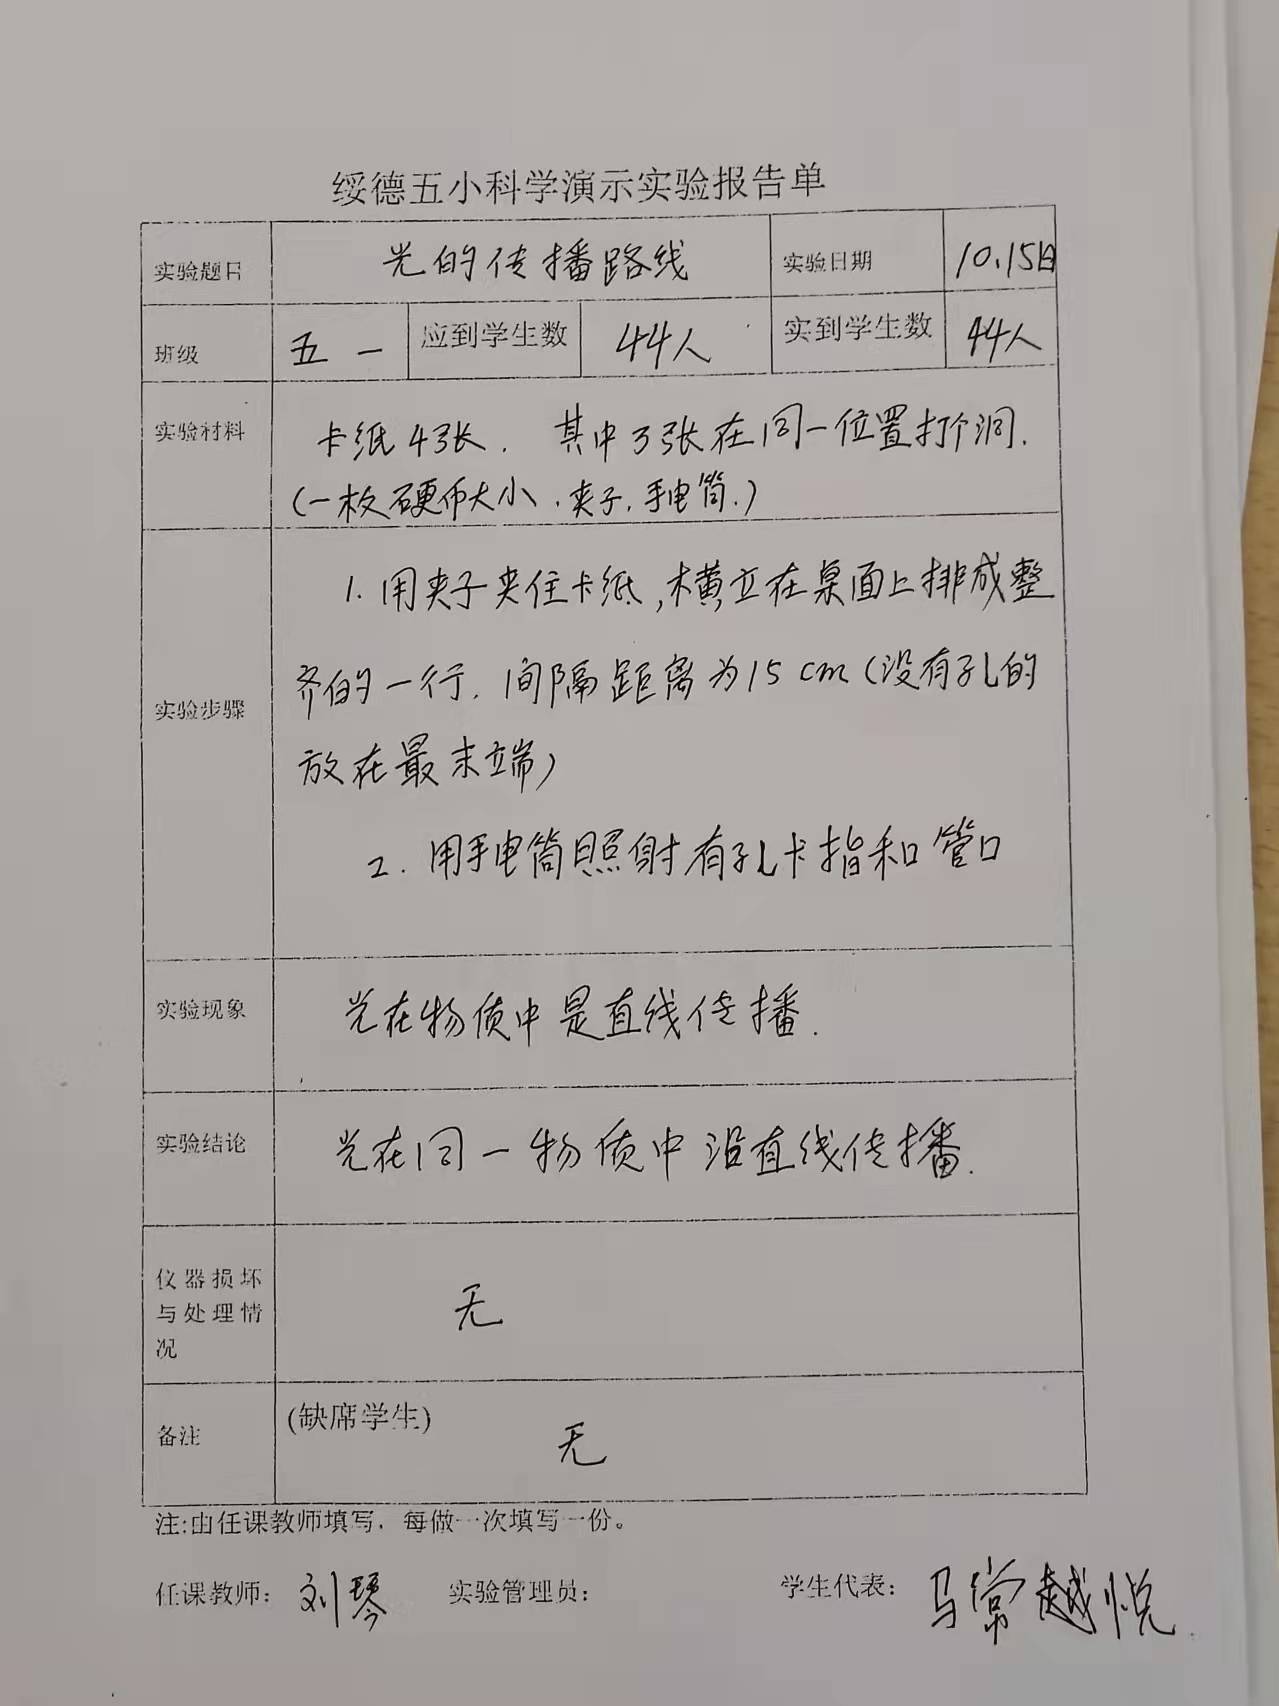 绥德五小科学演示实验报告单
实验题目 光的传播路线 实验日期 10.15日
班级 五一 应到学生数 44人 实到学生数 44人
实验材料 卡纸4张. 其中3张在同一位置打个洞.
(一枚硬币大小.夹子.手电筒.)
1.用夹子夹住卡纸,横立在桌面上排成整
齐的一行.间隔距离为15cm(没有孔的
实验步骤
放在最末端)
2.用手电筒照射有孔卡指和管口
实验现象 光在物质中是直线传播.
实验结论 光在同一物质中沿直线传播.
仪器损坏
与处理情 无
况
备注 (缺席学生) 无
注:由任课教师填写,每做一次填写一份。
任课教师: 刘琴 实验管理员: 学生代表: 马常越悦